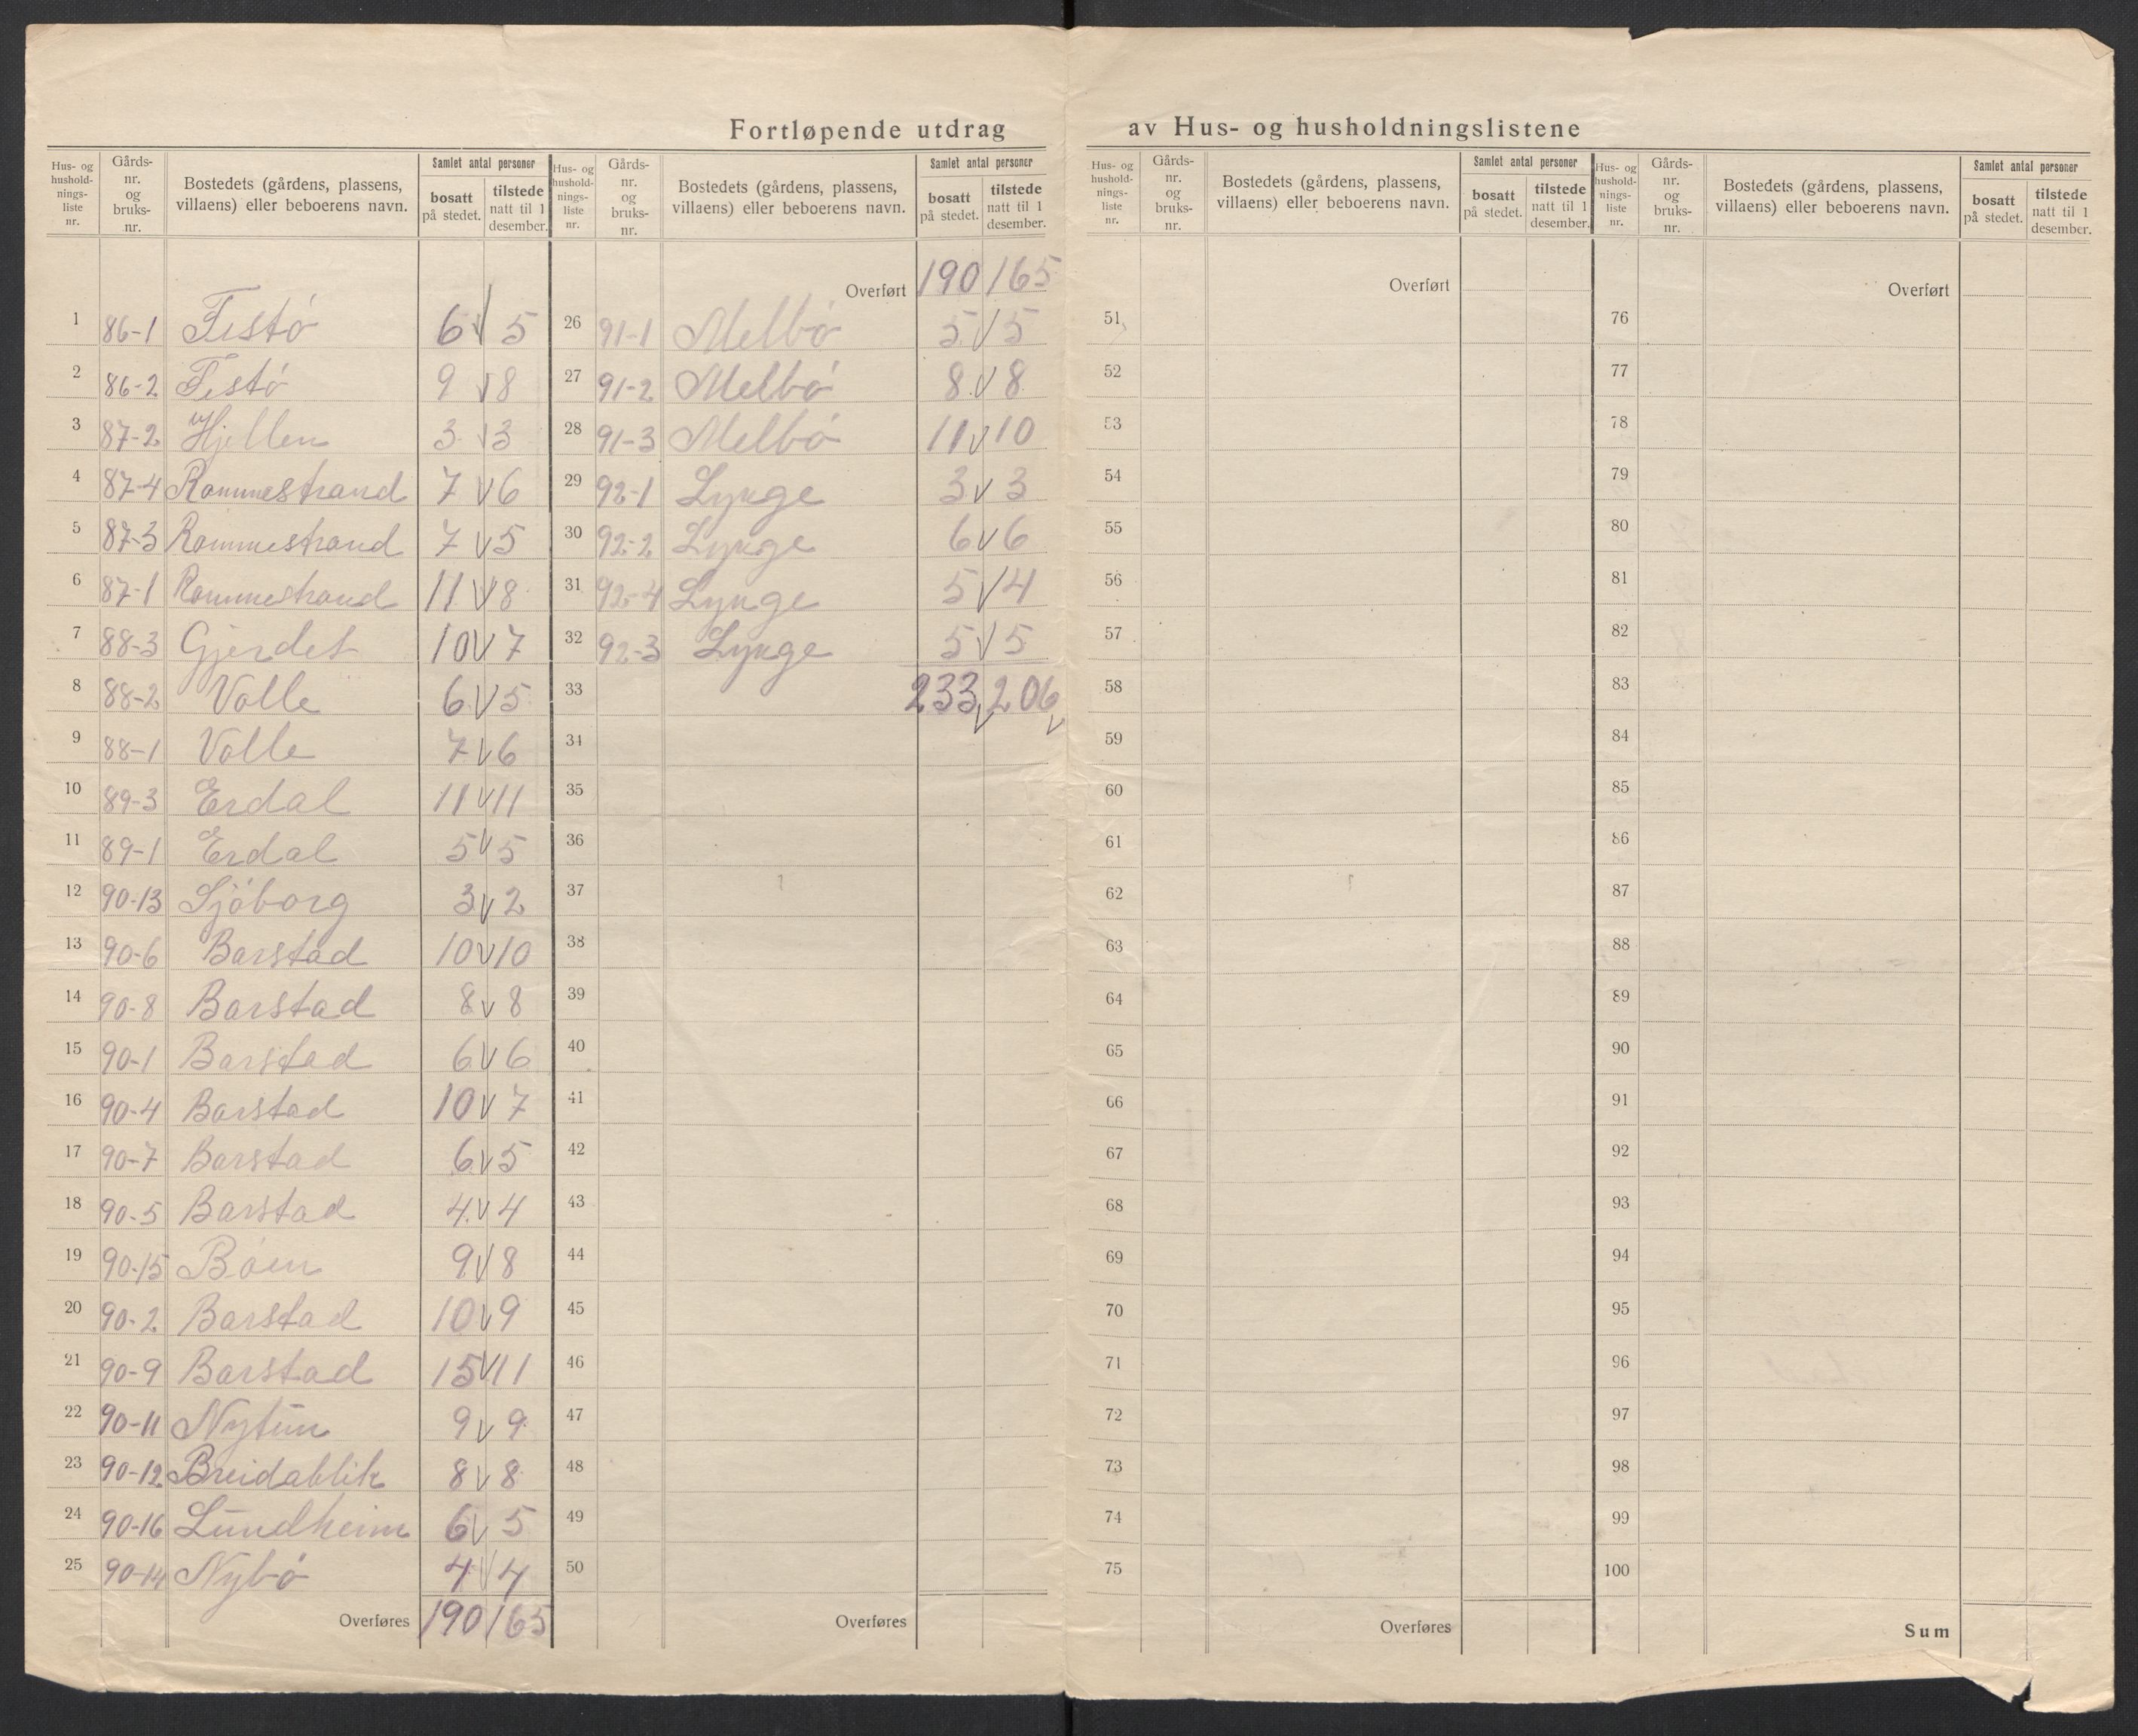 Fortløpende utdrag av Hus- og husholdningslistene
Hus- og husholdnings-liste nr. | Gårds-nr. og bruks-nr. | Bostedets (gårdens, plassens, villaens) eller beboerens navn. | Samlet antal personer | bosatt på stedet. | tilstede natt til 1 desember.
1 86-1 Festö 6 V 5
2 86-2 Festö 9 V 8
3 87-2 Hjellen 3 V 3
4 87-4 Rammestrand 7 V 6
5 87-3 Rammestrand 7 V 5
6 87-1 Rammestrand 11 V 8
7 88-3 Gjerdet 10 V 7
8 88-2 Valle 6 V 5
9 88-1 Valle 7 V 6
10 89-3 Erdal 11 V 11
11 89-1 Erdal 5 V 5
12 90-13 Sjöborg 3 V 2
13 90-6 Barstad 10 V 10
14 90-8 Barstad 8 V 8
15 90-1 Barstad 6 V 6
16 90-4 Barstad 10 V 7
17 90-7 Barstad 6 V 5
18 90-5 Barstad 4 V 4
19 90-15 Böen 9 V 8
20 90-2 Barstad 10 V 9
21 90-9 Barstad 15 V 11
22 90-11 Nytun 9 V 9
23 90-12 Breidablik 8 V 8
24 90-16 Lundheim 6 V 5
25 90-14 Nybö 4 V 4
Overføres 190 165
Hus- og husholdnings-liste nr. | Gårds-nr. og bruks-nr. | Bostedets (gårdens, plassens, villaens) eller beboerens navn. | Samlet antal personer | bosatt på stedet. | tilstede natt til 1 desember.
Overført 190 165
26 91-1 Melbö 5 V 5
27 91-2 Melbö 8 V 8
28 91-3 Melbö 11 V 10
29 92-1 Lynge 3 V 3
30 92-2 Lynge 6 V 6
31 92-4 Lynge 5 V 4
32 92-3 Lynge 5 V 5
33 233 V 206 V
34
35
36
37
38
39
40
41
42
43
44
45
46
47
48
49
50
Overføres
Hus- og husholdnings-liste nr. | Gårds-nr. og bruks-nr. | Bostedets (gårdens, plassens, villaens) eller beboerens navn. | Samlet antal personer | bosatt på stedet. | tilstede natt til 1 desember.
Overført
51
52
53
54
55
56
57
58
59
60
61
62
63
64
65
66
67
68
69
70
71
72
73
74
75
Overføres
Hus- og husholdnings-liste nr. | Gårds-nr. og bruks-nr. | Bostedets (gårdens, plassens, villaens) eller beboerens navn. | Samlet antal personer | bosatt på stedet. | tilstede natt til 1 desember.
Overført
76
77
78
79
80
81
82
83
84
85
86
87
88
89
90
91
92
93
94
95
96
97
98
99
100
Sum